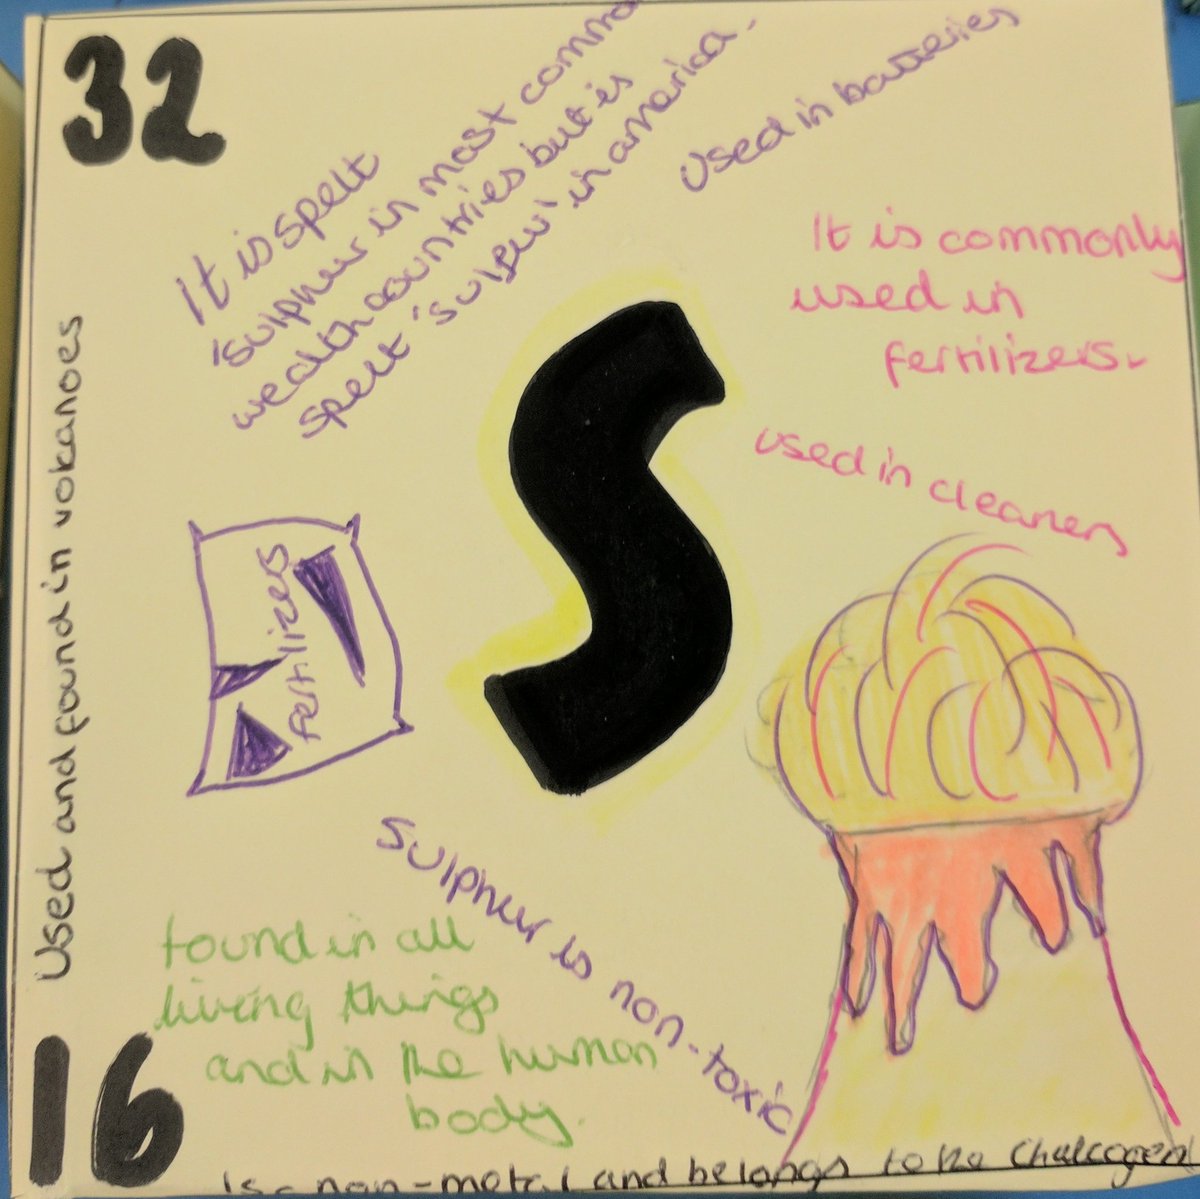 32
It is spelt
'sulphur in most common
wealth countries but is
spelt 'sulfur' in america.
Used in batteries
It is commonly
used in
fertilizers.
used in cleaners
S
Used and found in volcanoes
Fertilizers
Sulphur is non-toxic
found in all
living things
and in the human
body.
16
Is a non-metal and belongs to the Chalcogen